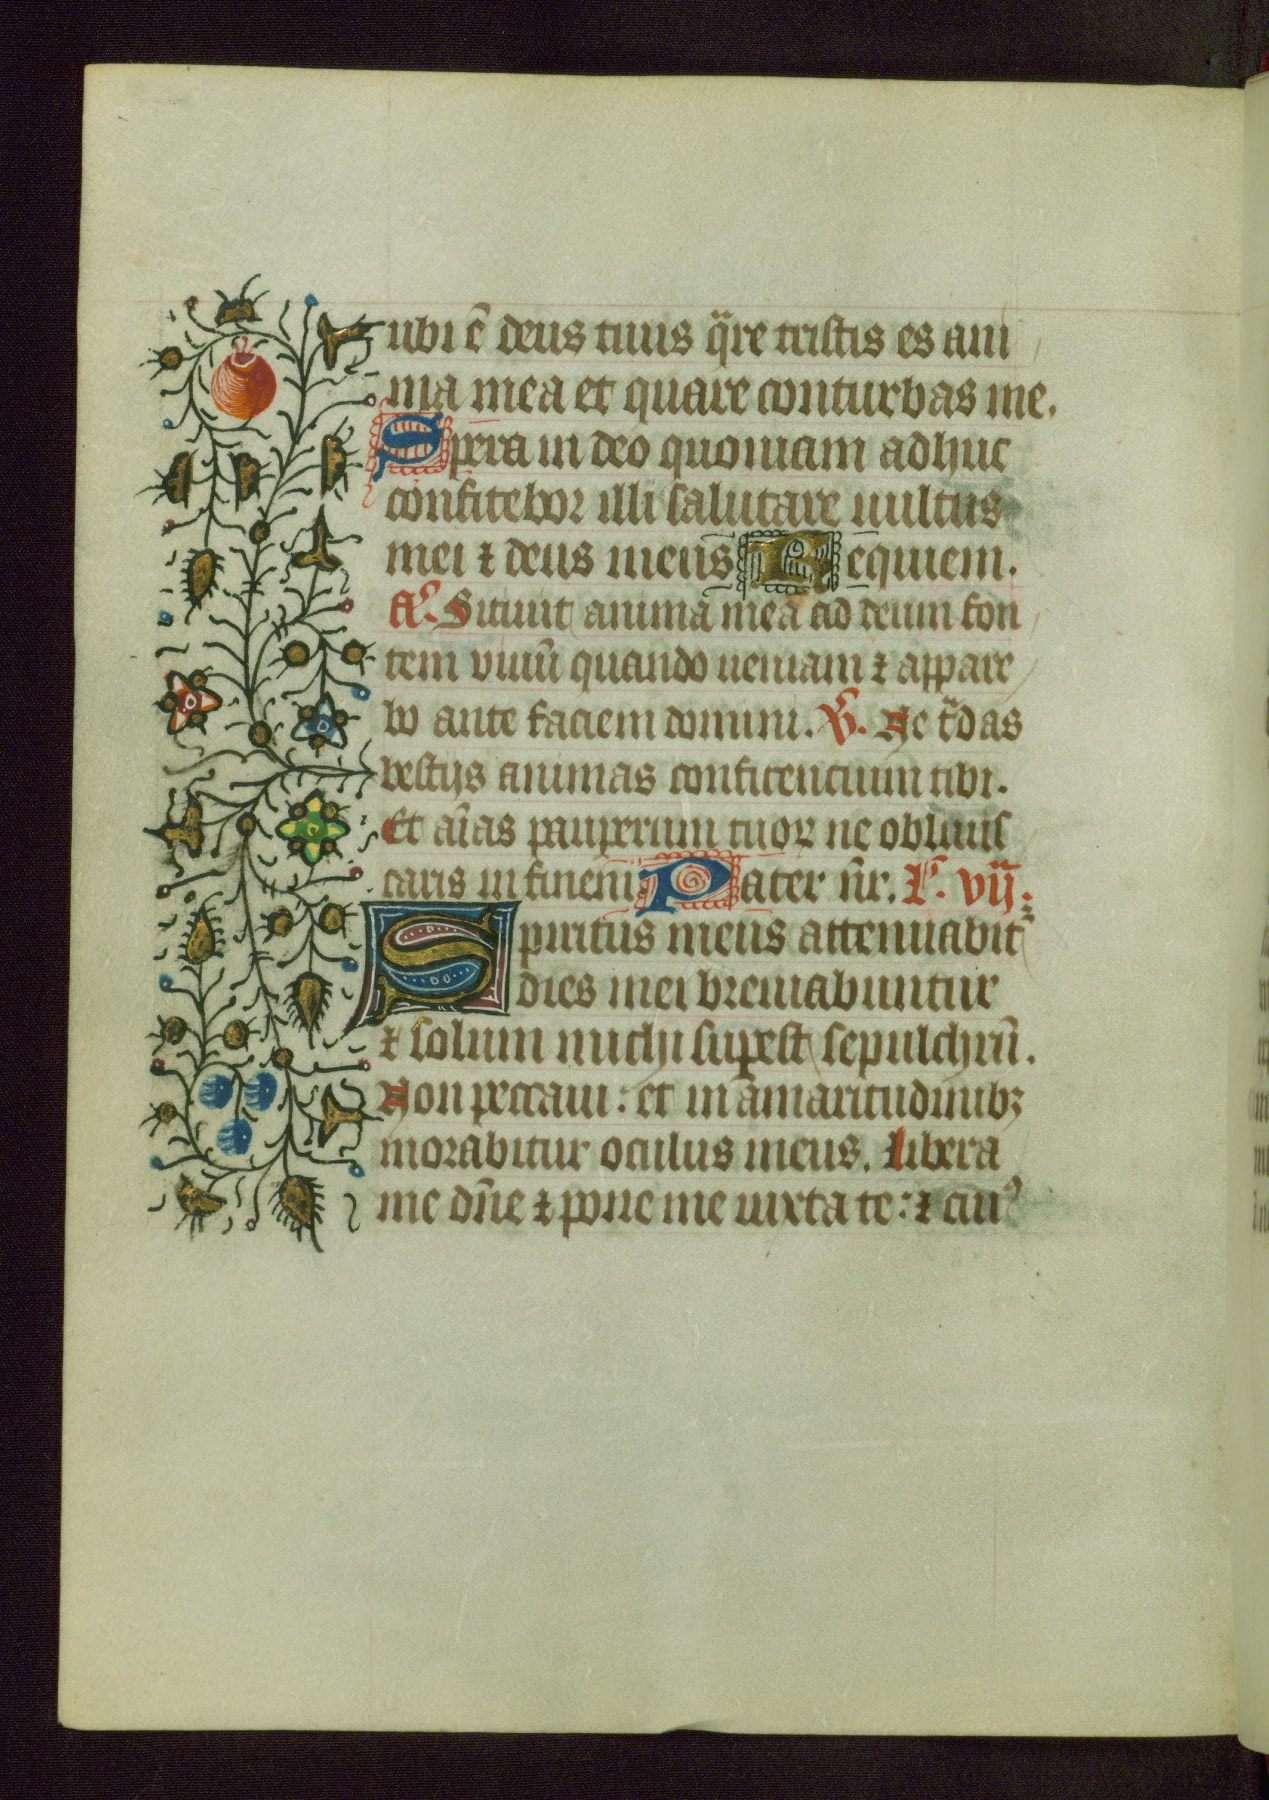 ubi ē deus tuus q̈re tristis es ani
ma mea et quare conturbas me.
Spera in deo quoniam adhuc
confitebor illi salutare uultus
mei ⁊ deus meus Requiem.
A͠. Sitiuit anima mea ad deum fon
tem viuū quando ueniam ⁊ appare
bo ante faciem domini. V̄. Ne t͛das
bestijs animas confitencium tibi.
Et aīas pauperum tuoꝝ ne obliuis
caris in finem Pater nr̄. L̄. vij;
Spiritus meus attenuabit̉
dies mei breuiabuntur
⁊ solum michi suꝑest sepulchrū.
Non peccaui : et in amaritudinibꝫ
morabitur oculus meus. Libera
me dn̄e ⁊ pone me iuxta te : ⁊ cuiꝰ